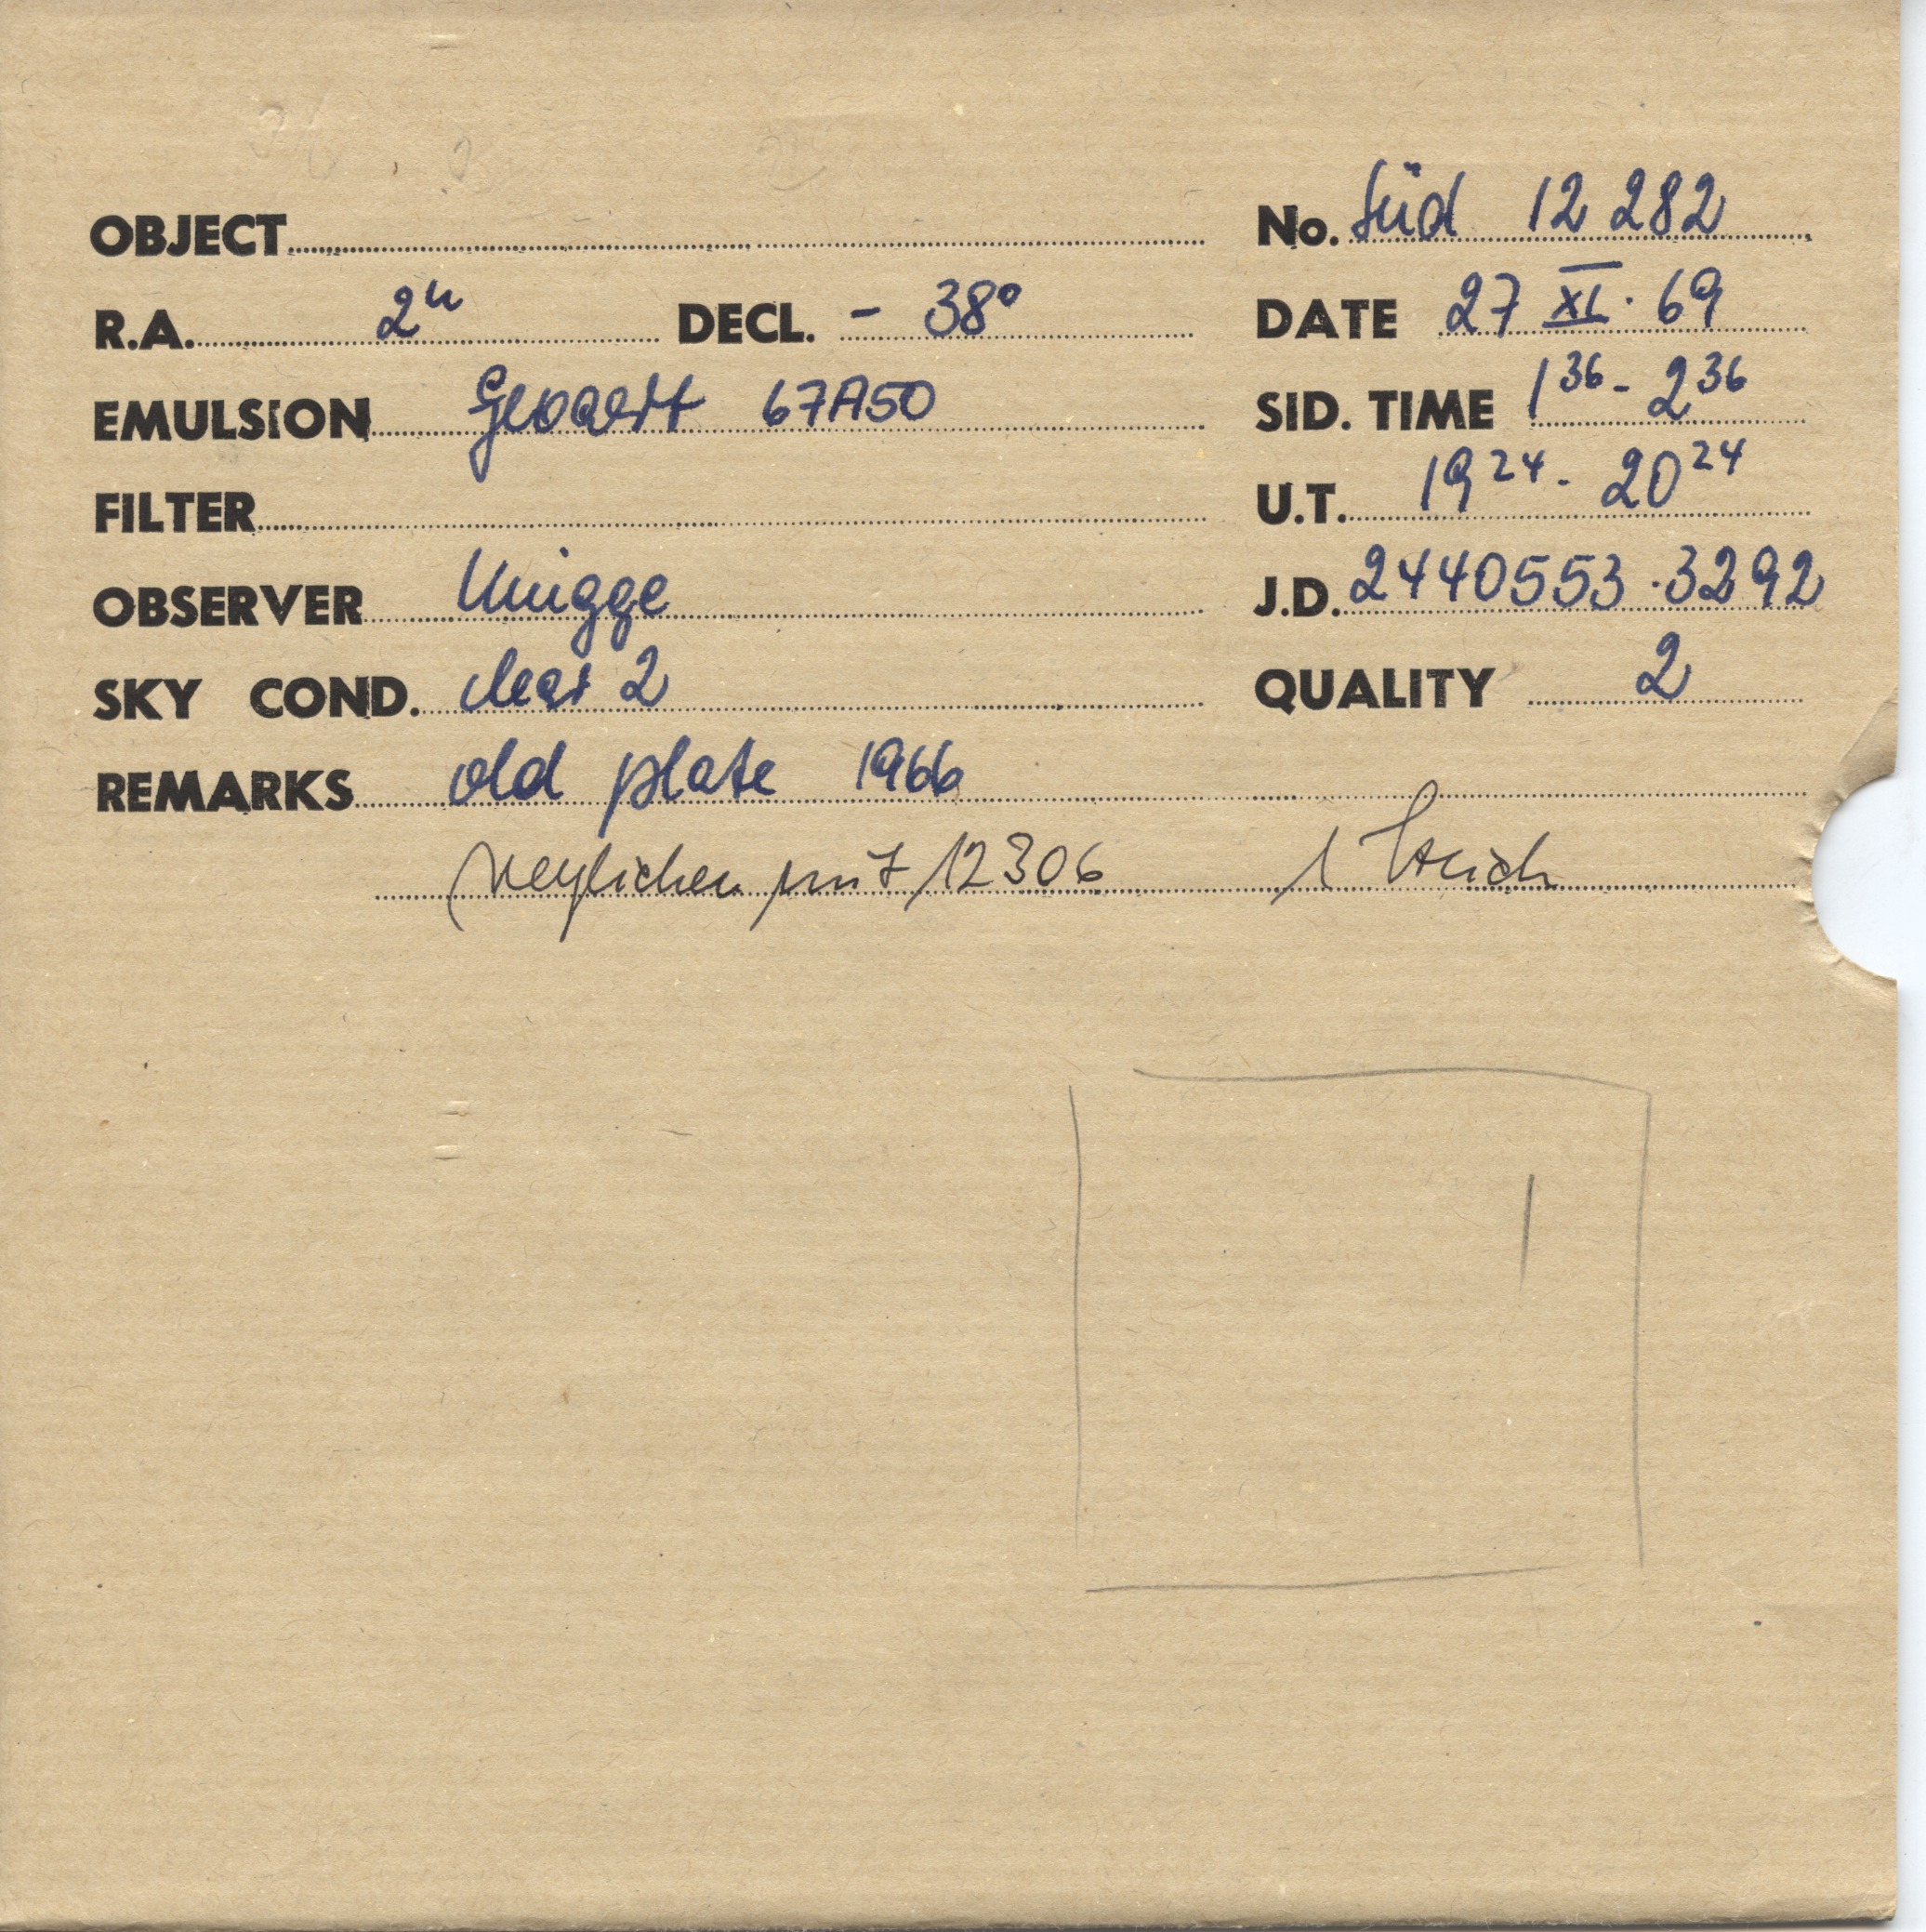 OBJECT No. Süd 12 282
R.A. 2h DECL. - 38° DATE 27 XI. 69
EMULSION Gevaert 67A50 SID. TIME 1 36 - 2 36
FILTER U.T. 19 24 - 20 24
OBSERVER Knigge J.D. 2440553.3292
SKY COND. clear 2 QUALITY 2
REMARKS old plate 1966
verglichen mit 12306 1 Strich